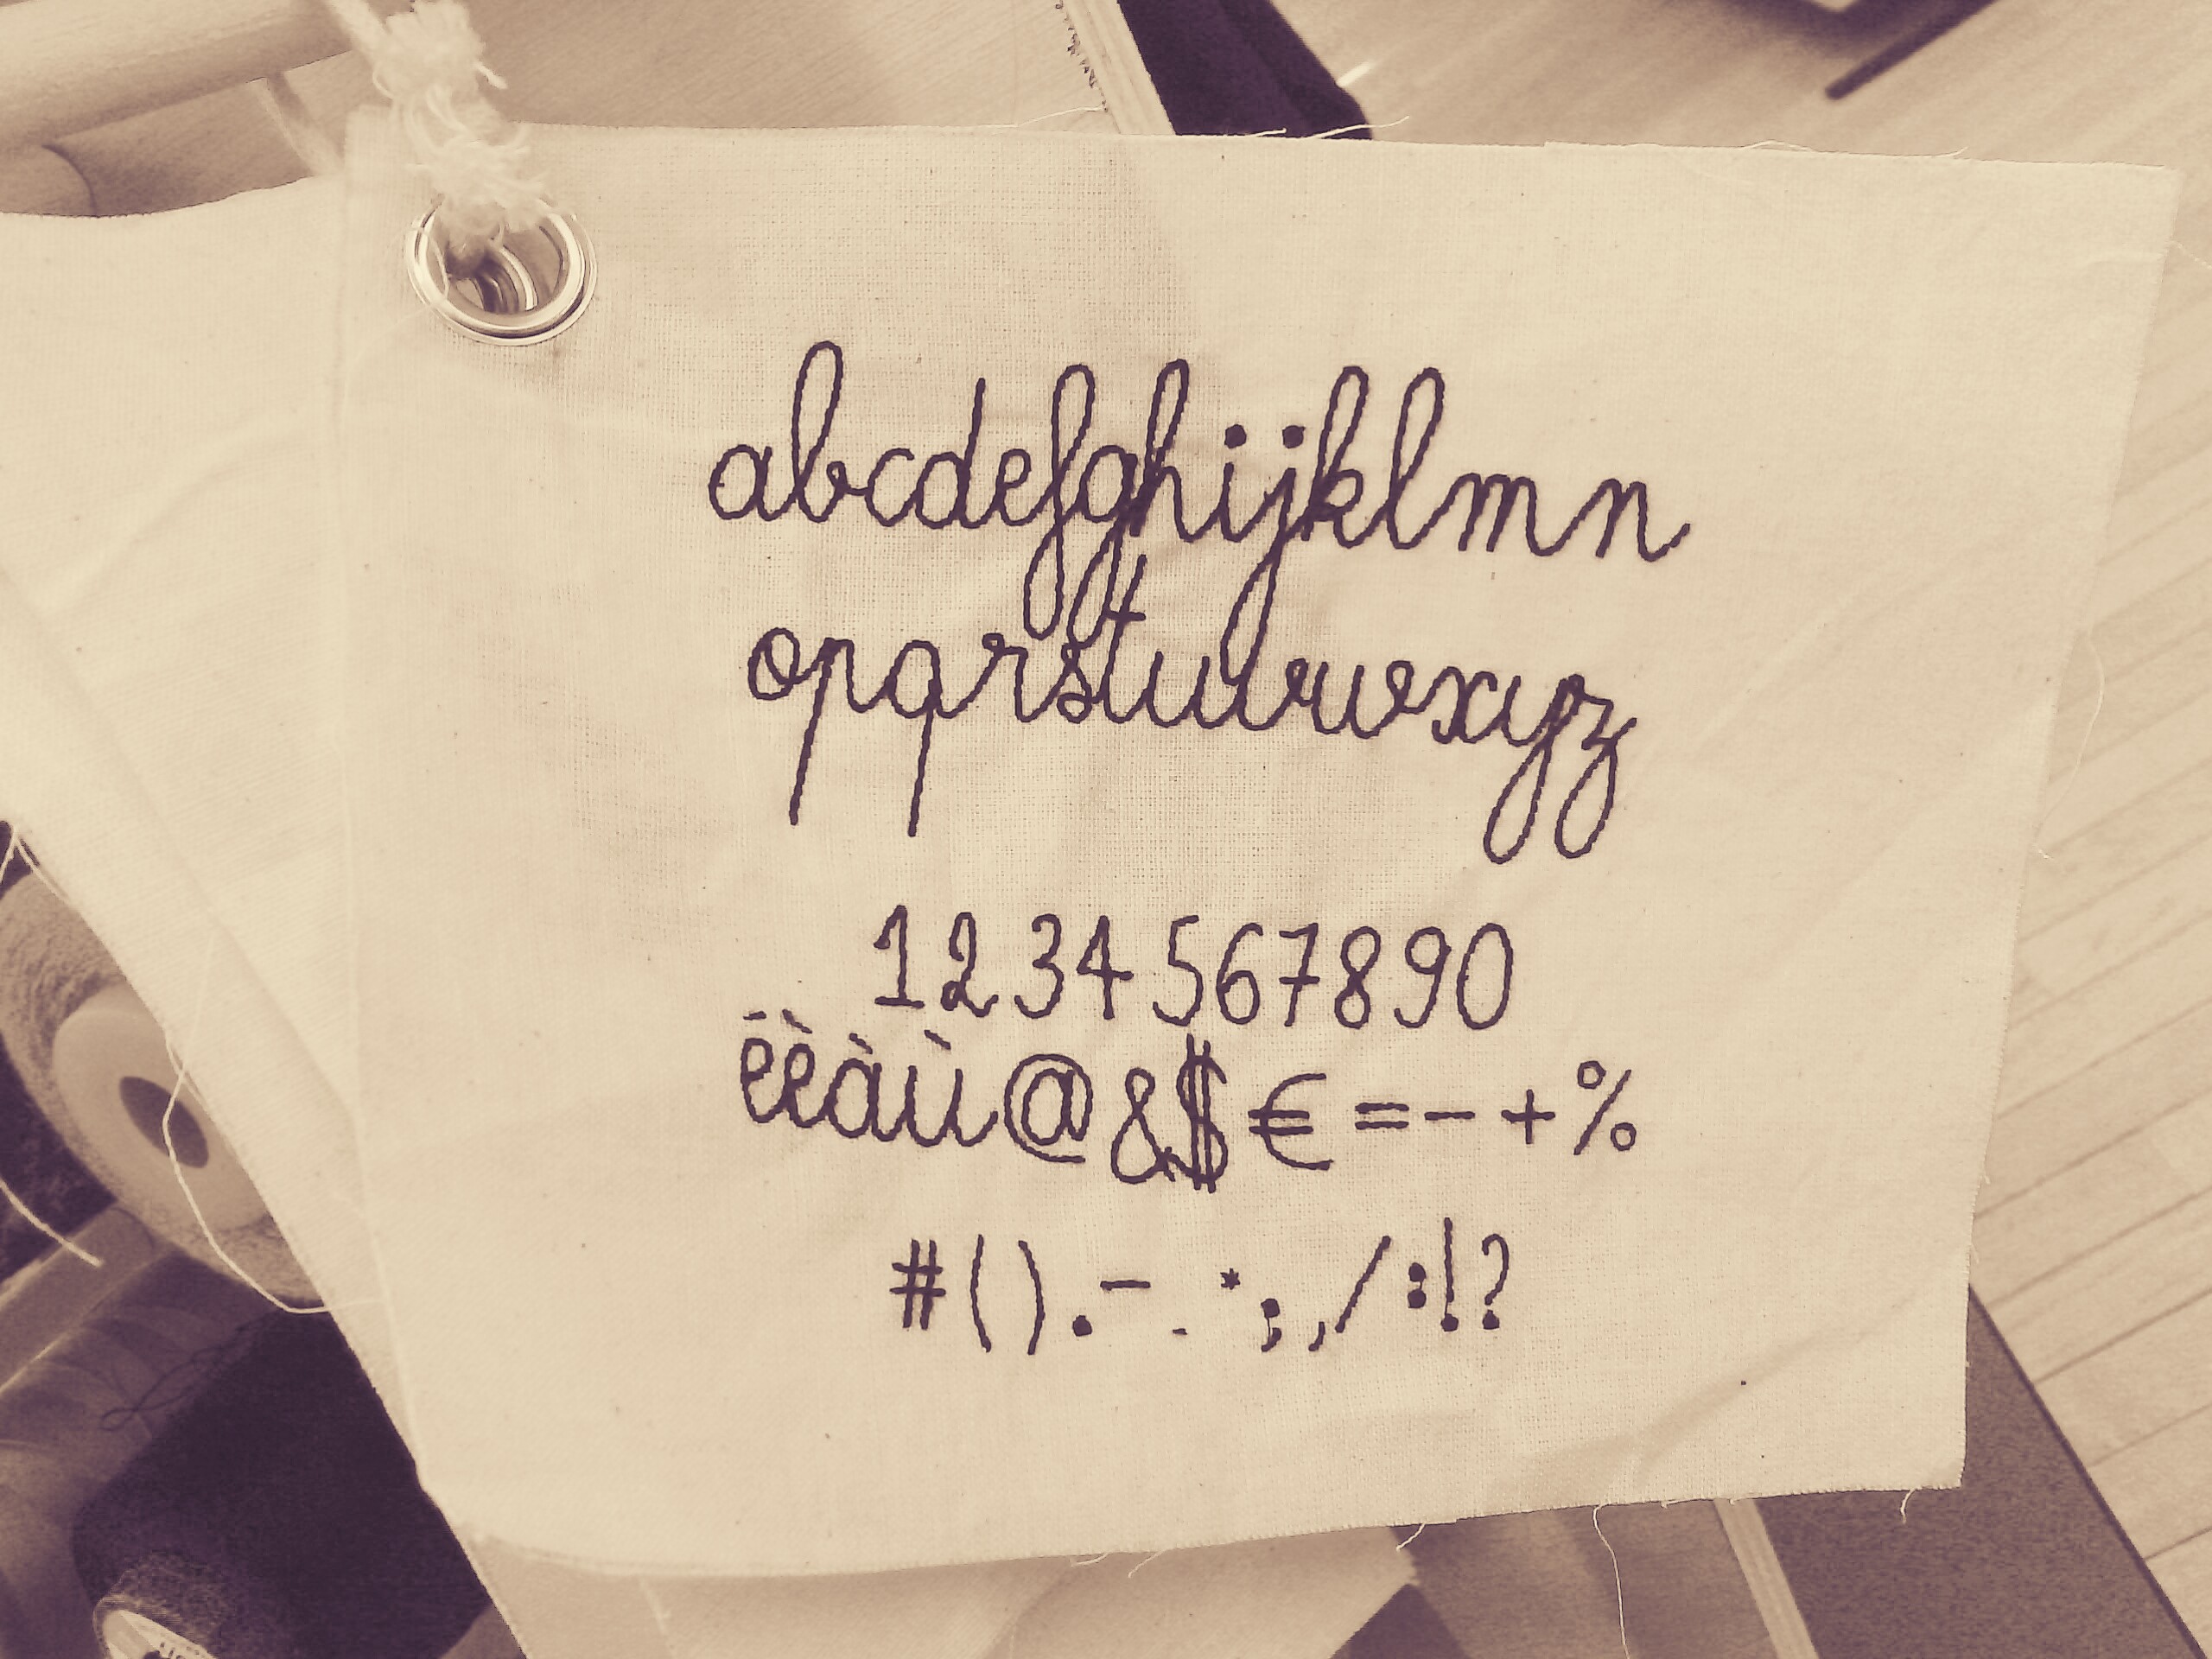 abcdefghijklmn
opqrstuvwxyz
1234567890
éèàù@&$€=-+%
#().- . *;,/:!?